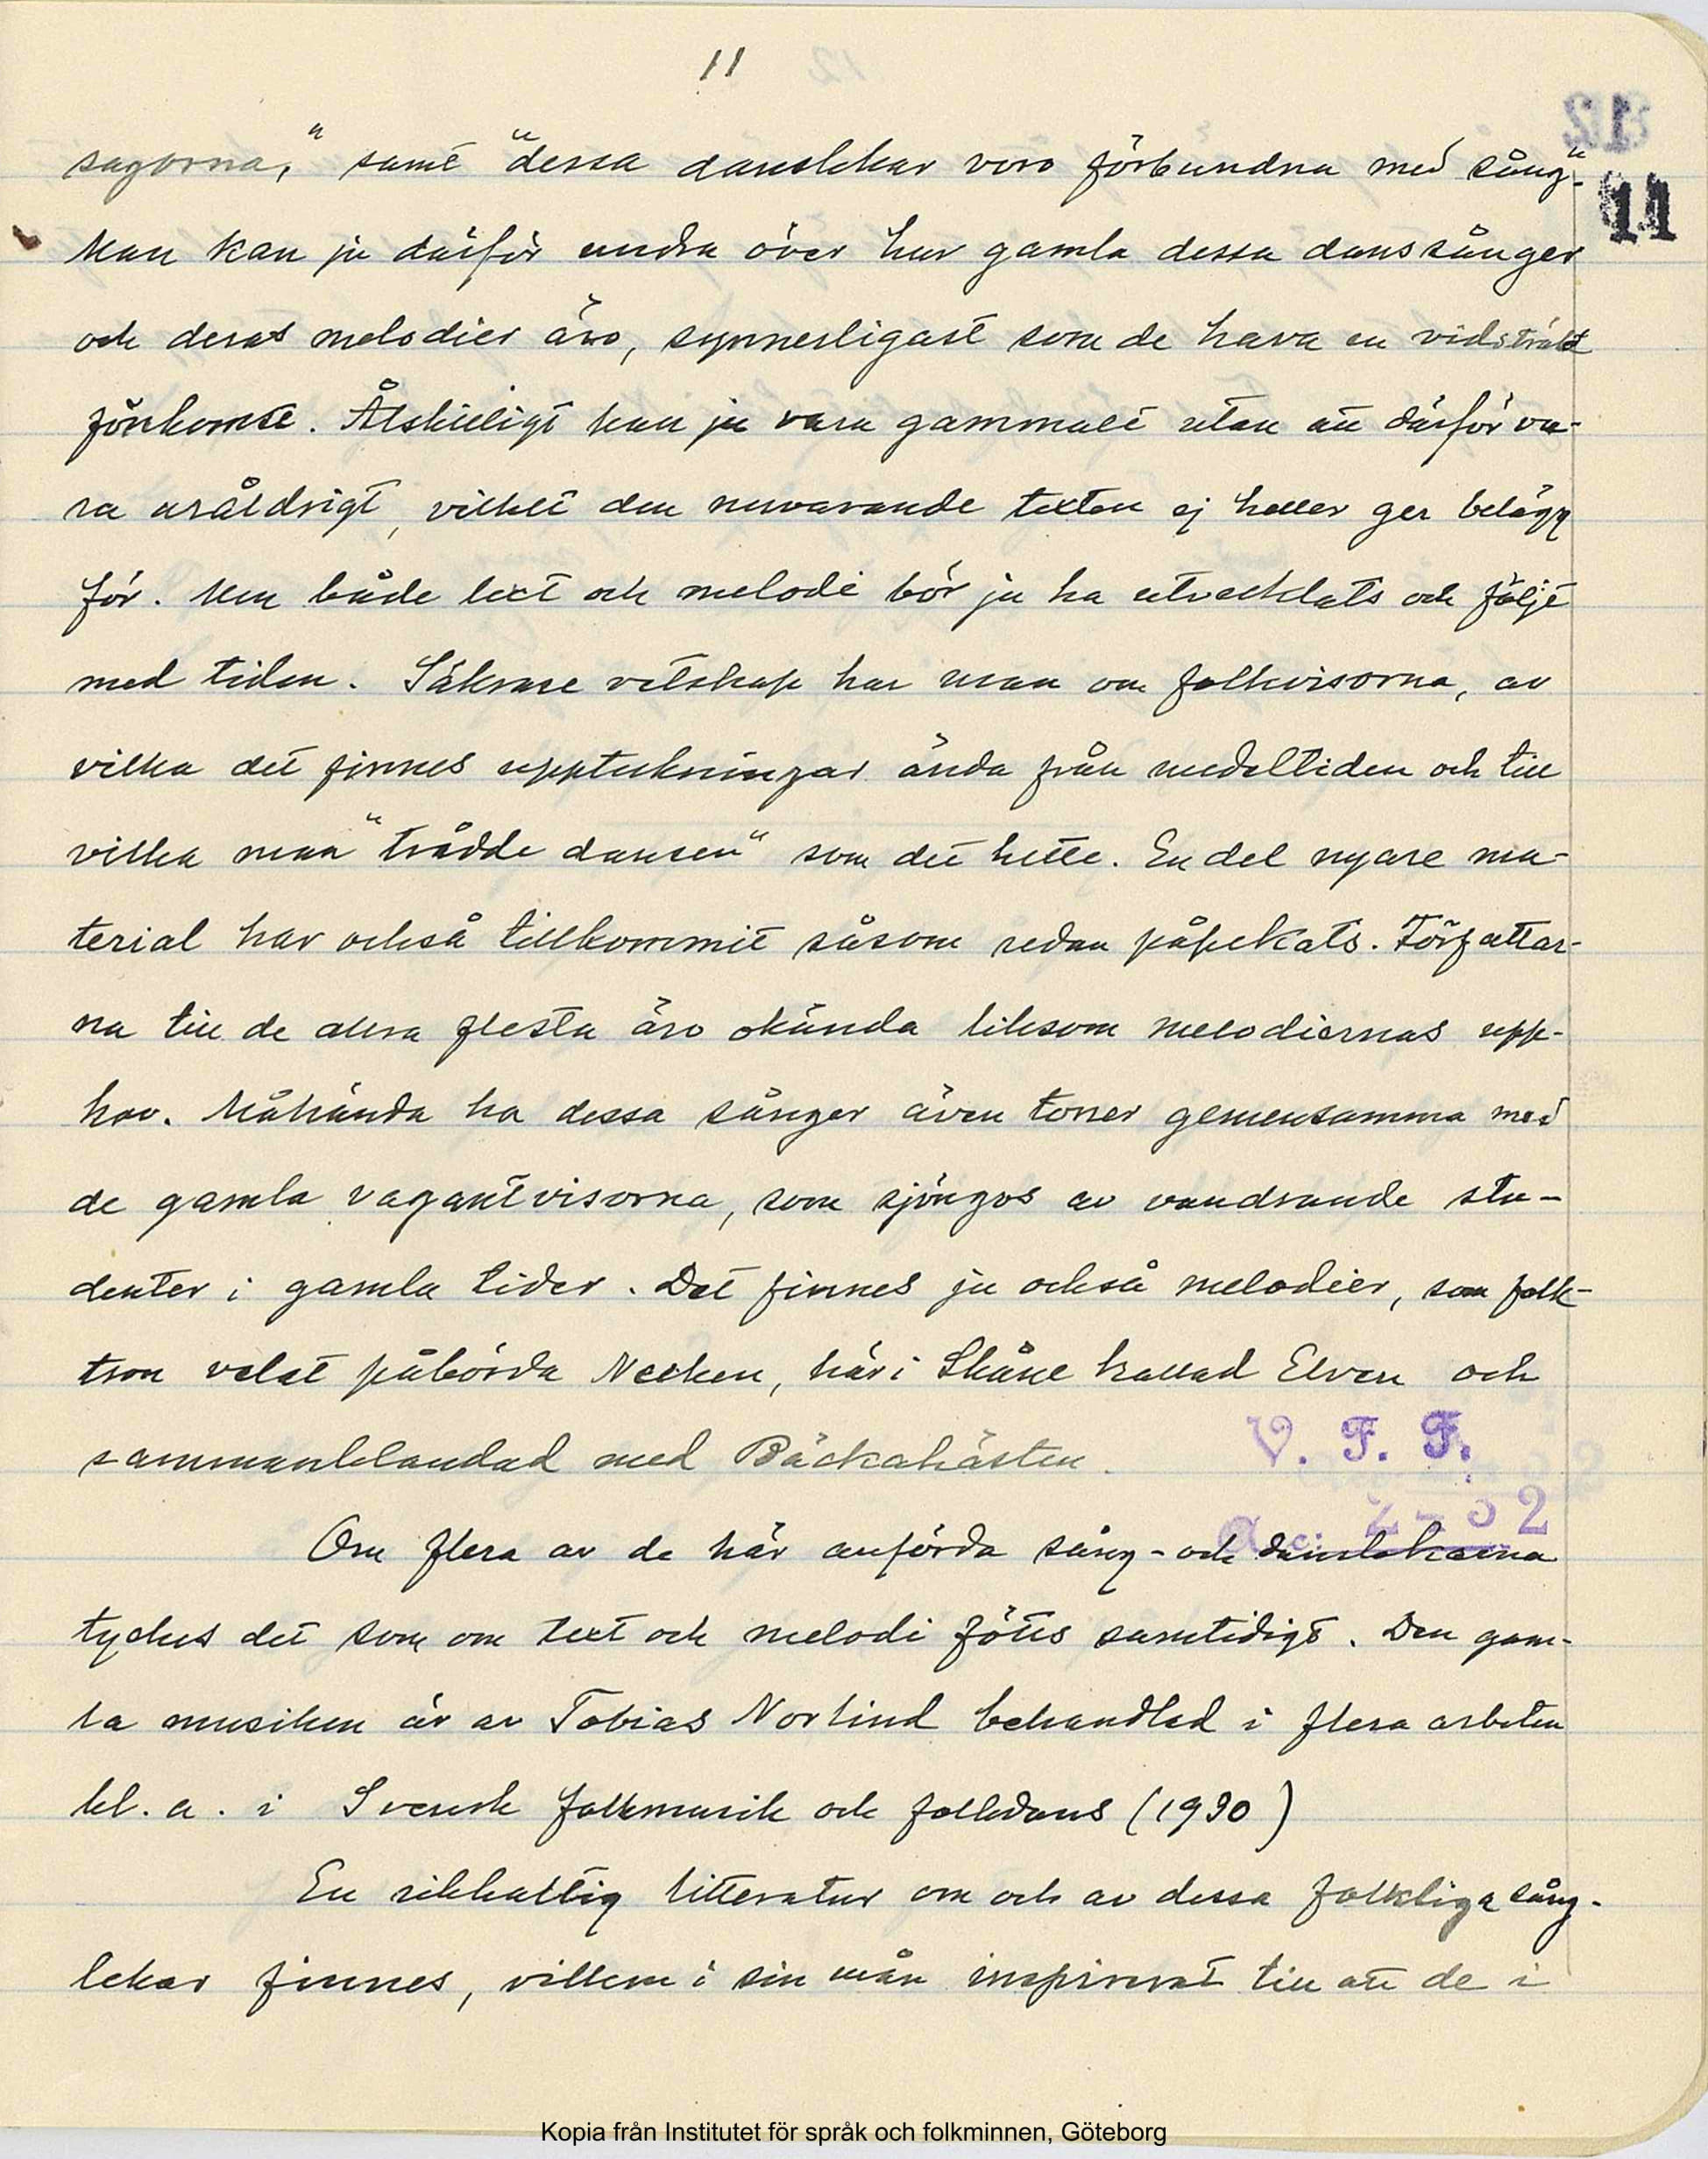 11
11
sagorna," samt "dessa danslekar voro förbundna med sång"
Man kan ju därför undra över hur gamla dessa danssånger
och deras melodier äro, synnerligast som de hava en vidsträkt
förekomst. Åtskilligt kan ju vara gammalt utan att därför va-
ra uråldrigt, vilket den nuvarande texten ej heller ger belägg
för. Men både text och melodi bör ju ha utvecklats och följt
med tiden. Säkrare vetskap har man om folkvisorna, av
vilka det finnes uppteckningar ända från medeltiden och till
vilka man "trådde dansen" som det hette. En del nyare ma-
terial har också tillkommit såsom redan påpekats. Författar-
na till de allra flesta äro okända liksom melodiernas upp-
hov. Måhända ha dessa sånger även toner gemensamma med
de gamla vagantvisorna, som sjöngos av vandrande stu-
denter i gamla tider. Det finnes ju också melodier, som folk-
tron velat påbörda Necken, här i Skåne kallad Elven och
sammanblandad med Bäckahästen.
V. F. F.
Om flera av de här anförda sång- och danslekarna
tyckes det som om text och melodi fötts samtidigt. Den gam-
la musiken är av Tobias Norlind behandlad i flera arbeten
bl. a. i Svensk folkmusik och folkdans (1930)
En rikhaltig litteratur om och av dessa folkliga sång-
lekar finnes, vilken i sin mån inspirerat till att de i
Kopia från Institutet för språk och folkminnen, Göteborg